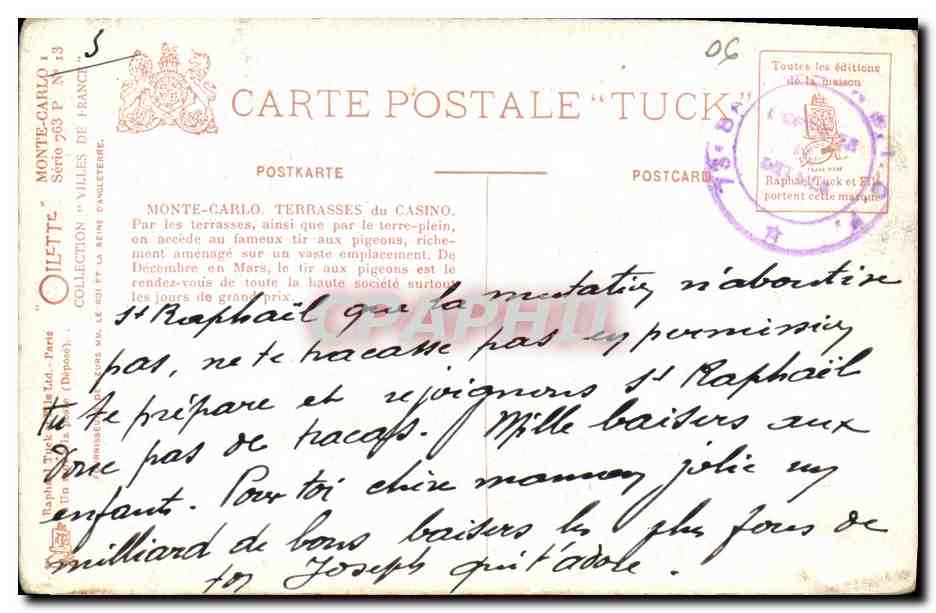 5
06
MONTE-CARLO I
Série 763 P Nº 13
COLLECTION "VILLES DE FRANCE"
"OILETTE"
LE ROI ET LA REINE D'ANGLETERRE.
Raphael Tuck Ltd. - Paris
(Déposé).
CARTE POSTALE "TUCK"
POSTKARTE
POSTCARD
Toutes les éditions
de la maison
Raphael Tuck et Fils
portent cette marque
MONTE-CARLO. TERRASSES du CASINO.
Par les terrasses, ainsi que par le terre-plein,
on accède au fameux tir aux pigeons, riche-
ment aménagé sur un vaste emplacement. De
Décembre en Mars, le tir aux pigeons est le
rendez-vous de toute la haute société surtout
les jours de grand prix.
CPAPHIL
St Raphaël que la mutation n'aboutise
pas, ne te tracasse pas en permission
tu te prépare et rejoignons St Raphaël
Donc pas de tracass. Mille baisers aux
enfants. Pour toi chère maman jolie un
milliard de bons baisers les plus fous de
ton Joseph qui t'adore.